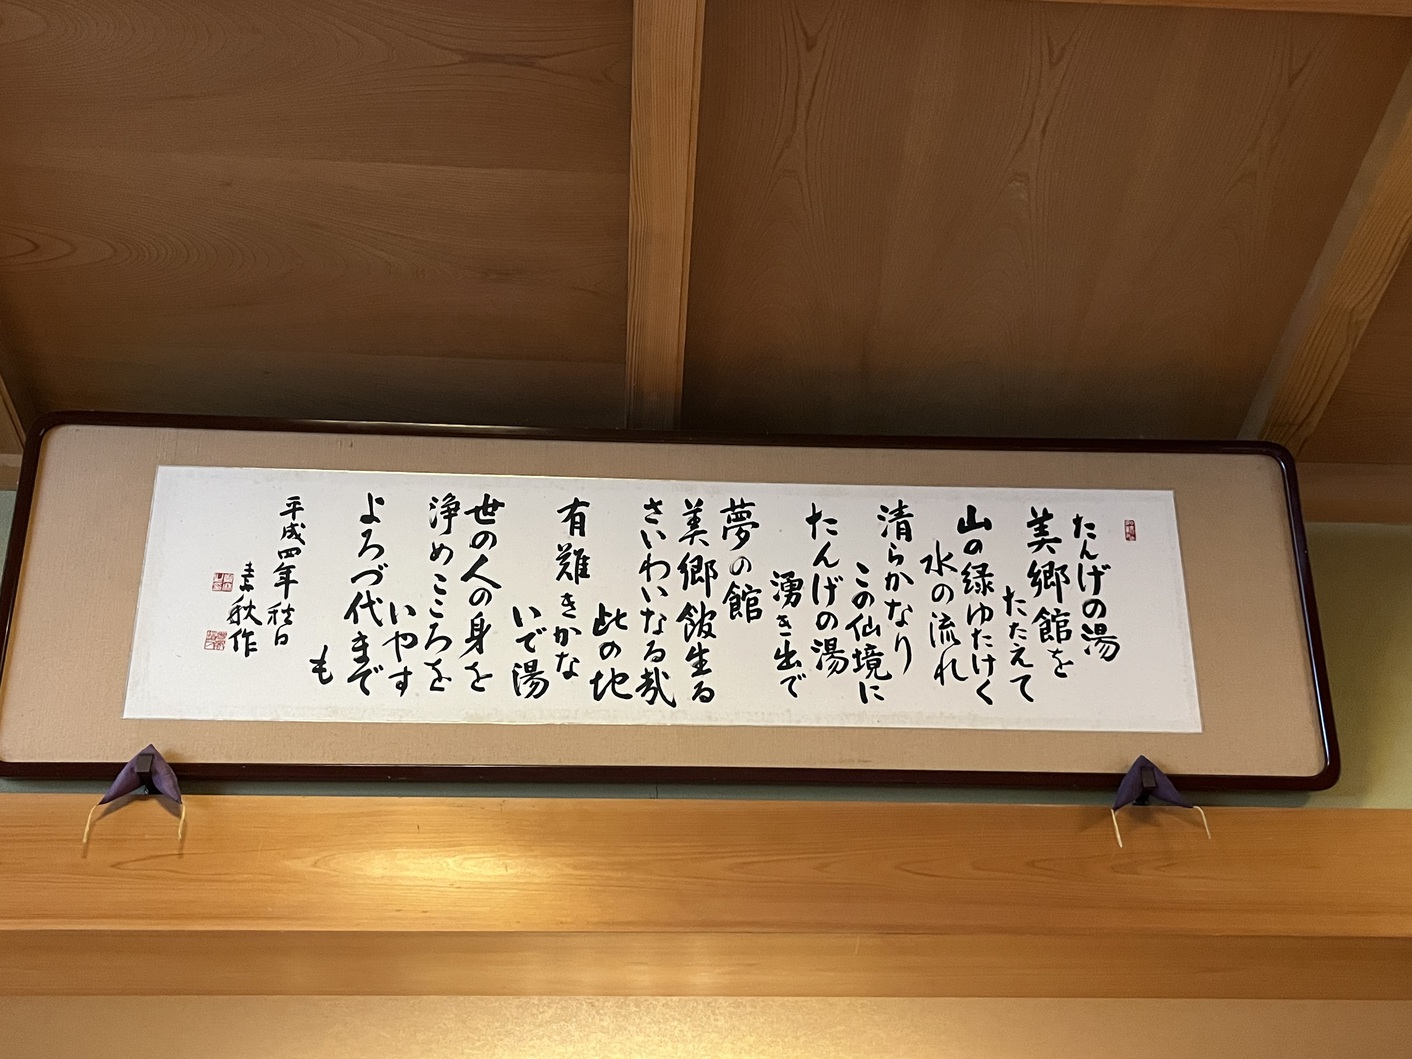 たんげの湯
美郷館を
たたえて
山の緑ゆたけく
水の流れ
清らかなり
この仙境に
たんげの湯
湧き出で
夢の館
美郷館生る
さいわいなる哉
此の地
有難きかな
いで湯
世の人の身を
浄めこころを
いやす
よろづ代まで
も
平成四年秋日
素秋作